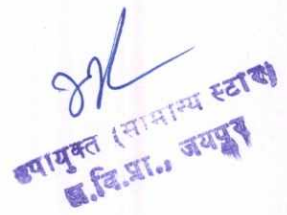 उपायुक्त (सामान्य स्टाक)
ज.वि.प्रा., जयपुर